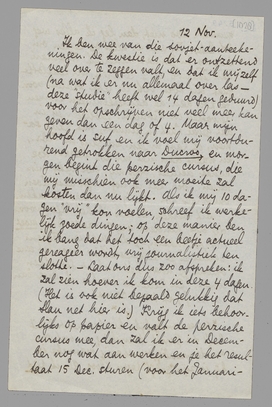 12 Nov.
Ik ben mee van die sovjet-aanteeke-
ningen. De kwestie is dat er ontzettend
veel over te zeggen valt, en dat ik mijzelf
(na wat ik er nu allemaal over las –
deze "studie" heeft wel 14 dagen geduurd)
voor het opschrijven niet veel meer kan
geven dan een dag of 4. Maar mijn
hoofd is suf en ik voel mij voortdu-
rend getrokken naar Ducroo, en mor-
gen begint die perzische cursus, die
mij misschien ook meer moeite zal
kosten dan nu lijkt. Als ik mij 10 da-
gen "vrij" kon voelen schreef ik werke-
lijk goede dingen; op deze manier ben
ik bang dat het toch een beetje actueel
gereageer wordt, vrij journalistiek ten
slotte. – Laat ons dus zoo afspreken: ik
zal zien hoever ik kom in deze 4 dagen.
(Het is ook niet bepaald gelukkig dat
Han net hier is.) Krijg ik iets behoor-
lijks op papier en valt de perzische
cursus mee, dan zal ik er in Decem-
ber nog wat aan werken en je het resul-
taat 15 Dec. sturen (voor het Januari-